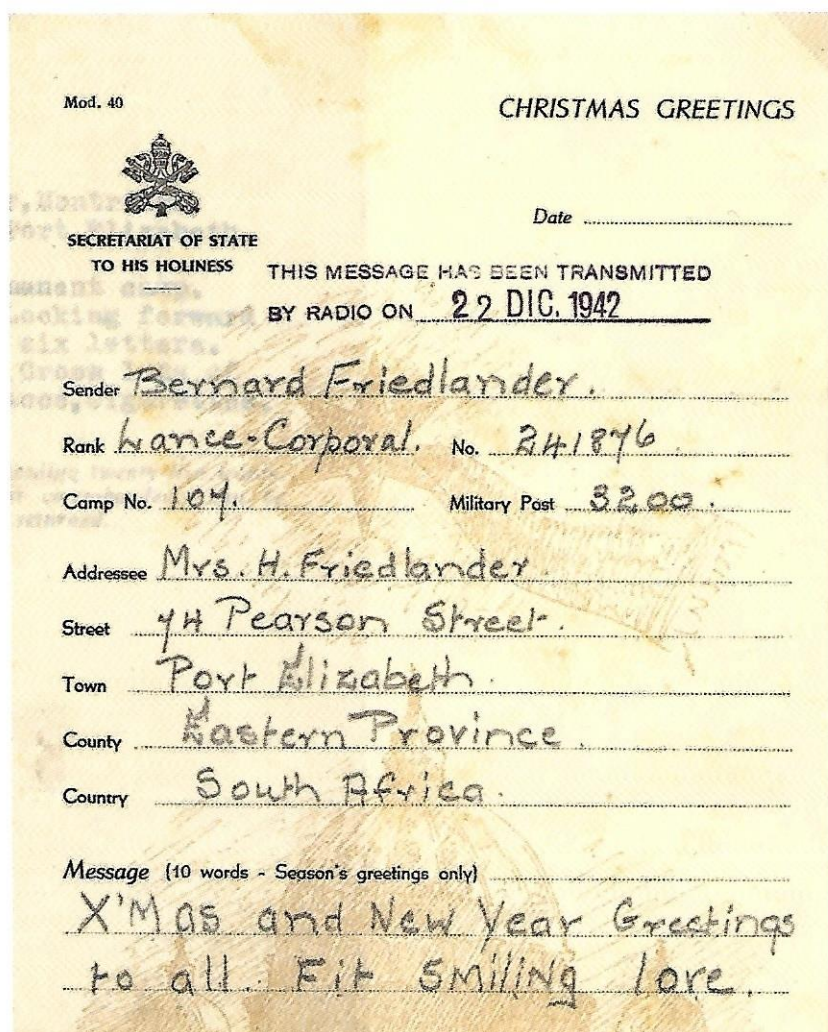 Mod. 40
CHRISTMAS GREETINGS
Date
SECRETARIAT OF STATE
TO HIS HOLINESS
THIS MESSAGE HAS BEEN TRANSMITTED
BY RADIO ON 22 DIC. 1942
Port Elizabeth
camp.
Looking forward
six letters.
Cross
Sender Bernard Friedlander.
Rank Lance-Corporal. No. 241876
Camp No. 107. Military Post 3200.
Addressee Mrs. H. Friedlander
Street 74 Pearson Street.
Town Port Elizabeth.
County Eastern Province.
Country South Africa.
Message (10 words - Season's greetings only)
X'Mas and New Year Greetings
to all. Fit smiling love.